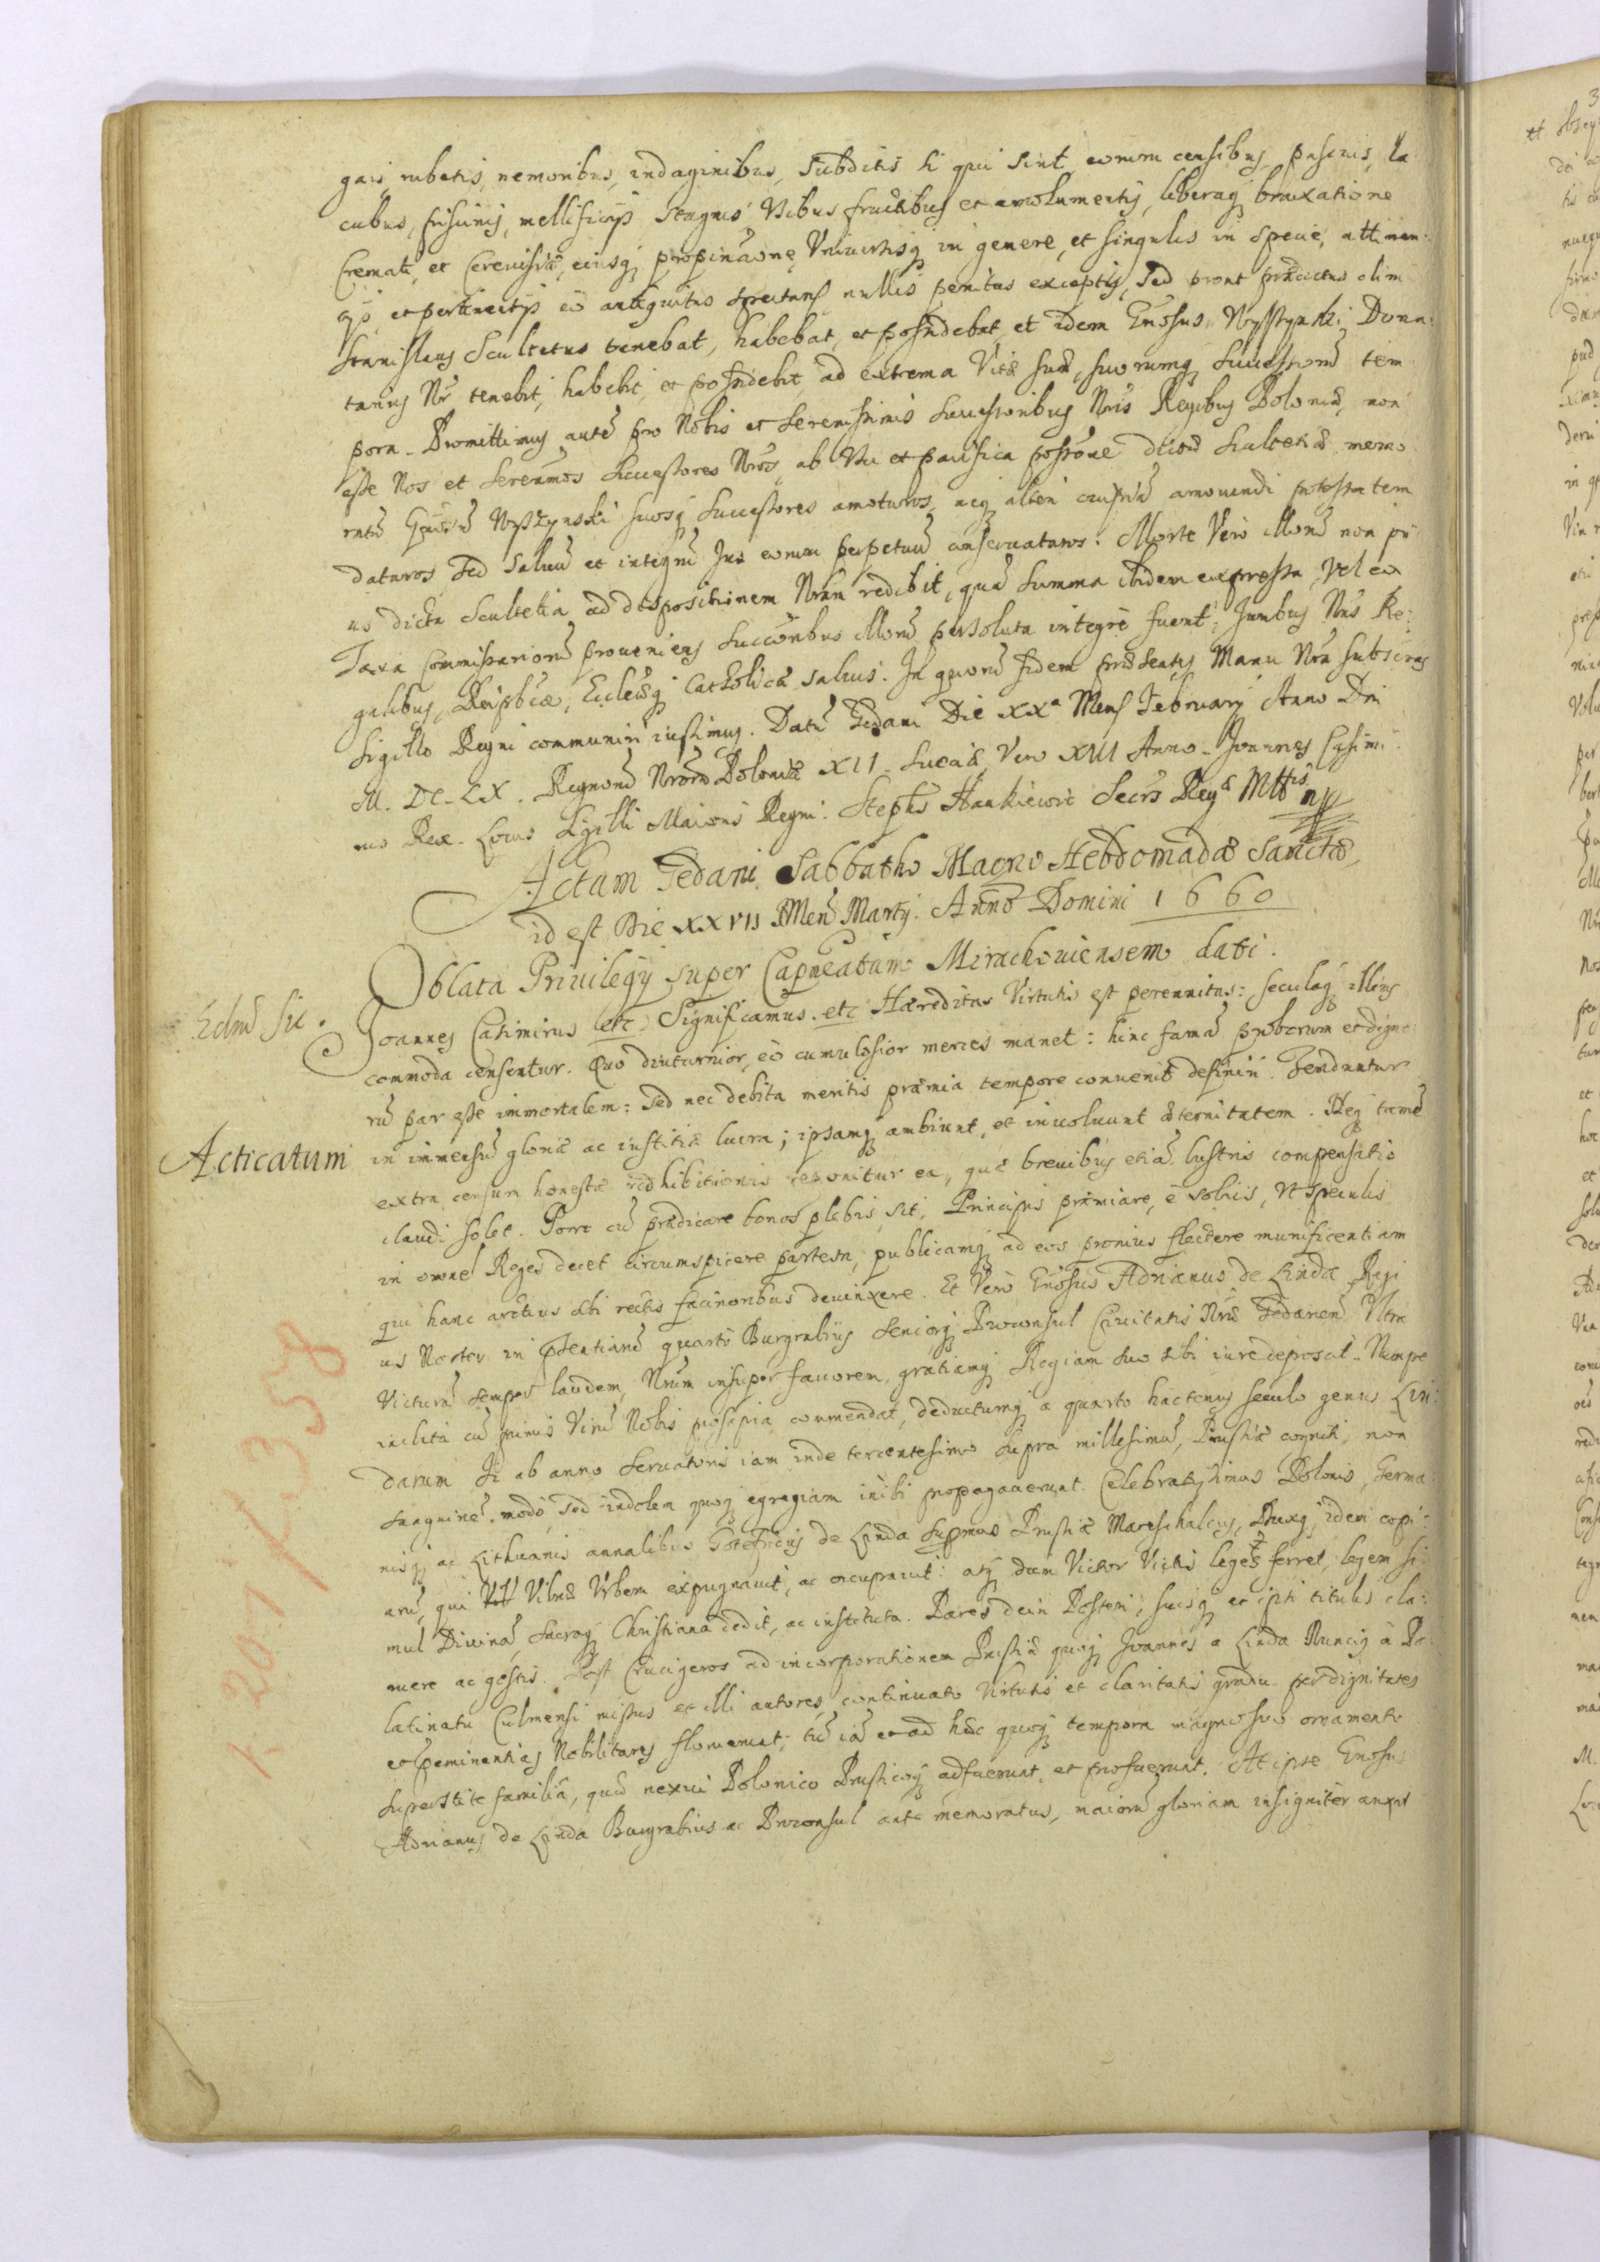 gais, rubetis, nemoribus, indaginibus, Subditis si qui sint, eorum censibus, pascuis, la
cubus, piscinis, mellificijs stagnis Usibus fructibus et emolumentis, liberaq braxatione
Cremati, et Cereuisiæ, eiusq propinaōne, Vniuersisq in genere, et singulis in specie, attinen:
ijs et pertinentijs eo antiquitus spectans nullis penitus exceptis, Sed prout prædictus olim
Stanislaus Scultetus tenebat, habebat, et possidebat, et idem Gnosus Wyszynski Dona:
tarius Nr tenebit, habebit, et possidebit ad extrema Vitæ suæ, suorumq Successorū tem
pora. Promittimus autē pro Nobis et Serenissimis Successoribus Nris Regibus Poloniæ, non
esse Nos et Serenmos Successores Nros, ab Usu et pacifica possōne dictæ Scultetiæ memo
ratū Gnosū Wyszynski suosq Successores amoturos, neq alteri cuipiā amouendi potestatem
daturos, Sed saluū et integrū Jus eorum perpetuū conseruaturos. Morte Vero illorū non pri
us dicta Scultetia ad dispositionem Nram redibit, quā summa ibidem expressa, Vel ex
Taxa Commissariorū proueniens Succōribus illorū persoluta integre fuerit. Juribus Nris Re:
galibus, Reipbcæ, Ecclesiæq Catholicæ saluis. In quorū fidem præsentes Manu Nra subscras
Sigillo Regni communiri iussimus. Datū Gedani Die XXa Mens February Anno Dni
M. DC. LX. Regnorū Nrorū Poloniæ XII. Sueciæ Vero XIII Anno. Joannes Casimi:
rus Rex. Locus Sigilli Maioris Regni. Stephs Hankiewic Secrs Regæ Mttis mp
Actum Gedani Sabbatho Magno Hebdomadæ Sanctæ,
id est Die XXVII Mens Martij. Anno Domini 1660
Oblata Priuilegij super Capitaneatum Mirachouiensem dati.
Joannes Casimirus etc Significamus. etc Hæreditas Virtutis est perennitas: seculaq illius
commoda censentur. Quo diuturnior, eò cumulosior merces manet: hinc famā proborum et digno
rū par esse immortalem: Sed nec debita meritis præmia tempore conuenit definiri. Tenduntur
Acticatum
in immensū gloriæ ac iustitiæ lucra; ipsamq ambiunt, et inuoluunt æternitatem. Neq tamē
extra censum honestæ redhibitionis reponitur ea, quæ breuibus etiā lustris compensatio
claudi solet. Porro cū prædicare bonos plebis sit, Principis præmiare, è solijs, Vt speculis
in omnē Reges decet circumspicere partem, publicamq ad eos pronius flectere munificentiam
qui hanc arctius sibi rectis facinoribus deuinxere. Et Vero Gnosus Adrianus de Linda Regi
us Noster in præsentiarū quarto Burgrabius Seniorq Proconsul Ciuitatis Nræ Gedanens Vltra
Victurā semper laudem, Nrum insuper fauorem, gratiamq Regiam suo sibi iure deposcit. Nempe
inclita cū primis Virū Nobis prosapia commendat, deductumq a quarto hactenus seculo genus Lin:
darum Si ab anno Seruatoris iam inde tercentesimo supra millesimū, Prussiæ cogniti, non
sanguinē modo, sed indolem quoq egregiam inibi propagauerunt. Celebratissimus Polonis, Germa
nisq ac Lithuanis annalibus Gotefridus de Linda Supmus Prussiæ Mareschalcus, Duxq idem copi:
arū, qui Vilnā Urbem expugnauit, ac occupauit: atq dum Victor Victis leges ferret, legem si
mul Diuinā, Sacraq Christiana dedit, ac instituta. Pares dein Posteri, suisq et ipsi titulis cla:
ruere ac gestis. Post Crucigeros ad incorporationem Prussiæ quoq Joannes a Linda Nuncius à Pa:
latinatu Culmensi missus et illi autores, continuato Virtutis et claritatis gradu per dignitates
et Peminentias Nobilitares floruerunt; tū iā et ad hæc quoq tempora magno suo ornamento
superstite familiā, quæ nexui Polonico Prussicoq adfuerunt, et profuerunt. At ipse Gnosus
Adrianus de Linda Burgrabius ac Proconsul ante memoratus, maiorū gloriam insigniter auxit